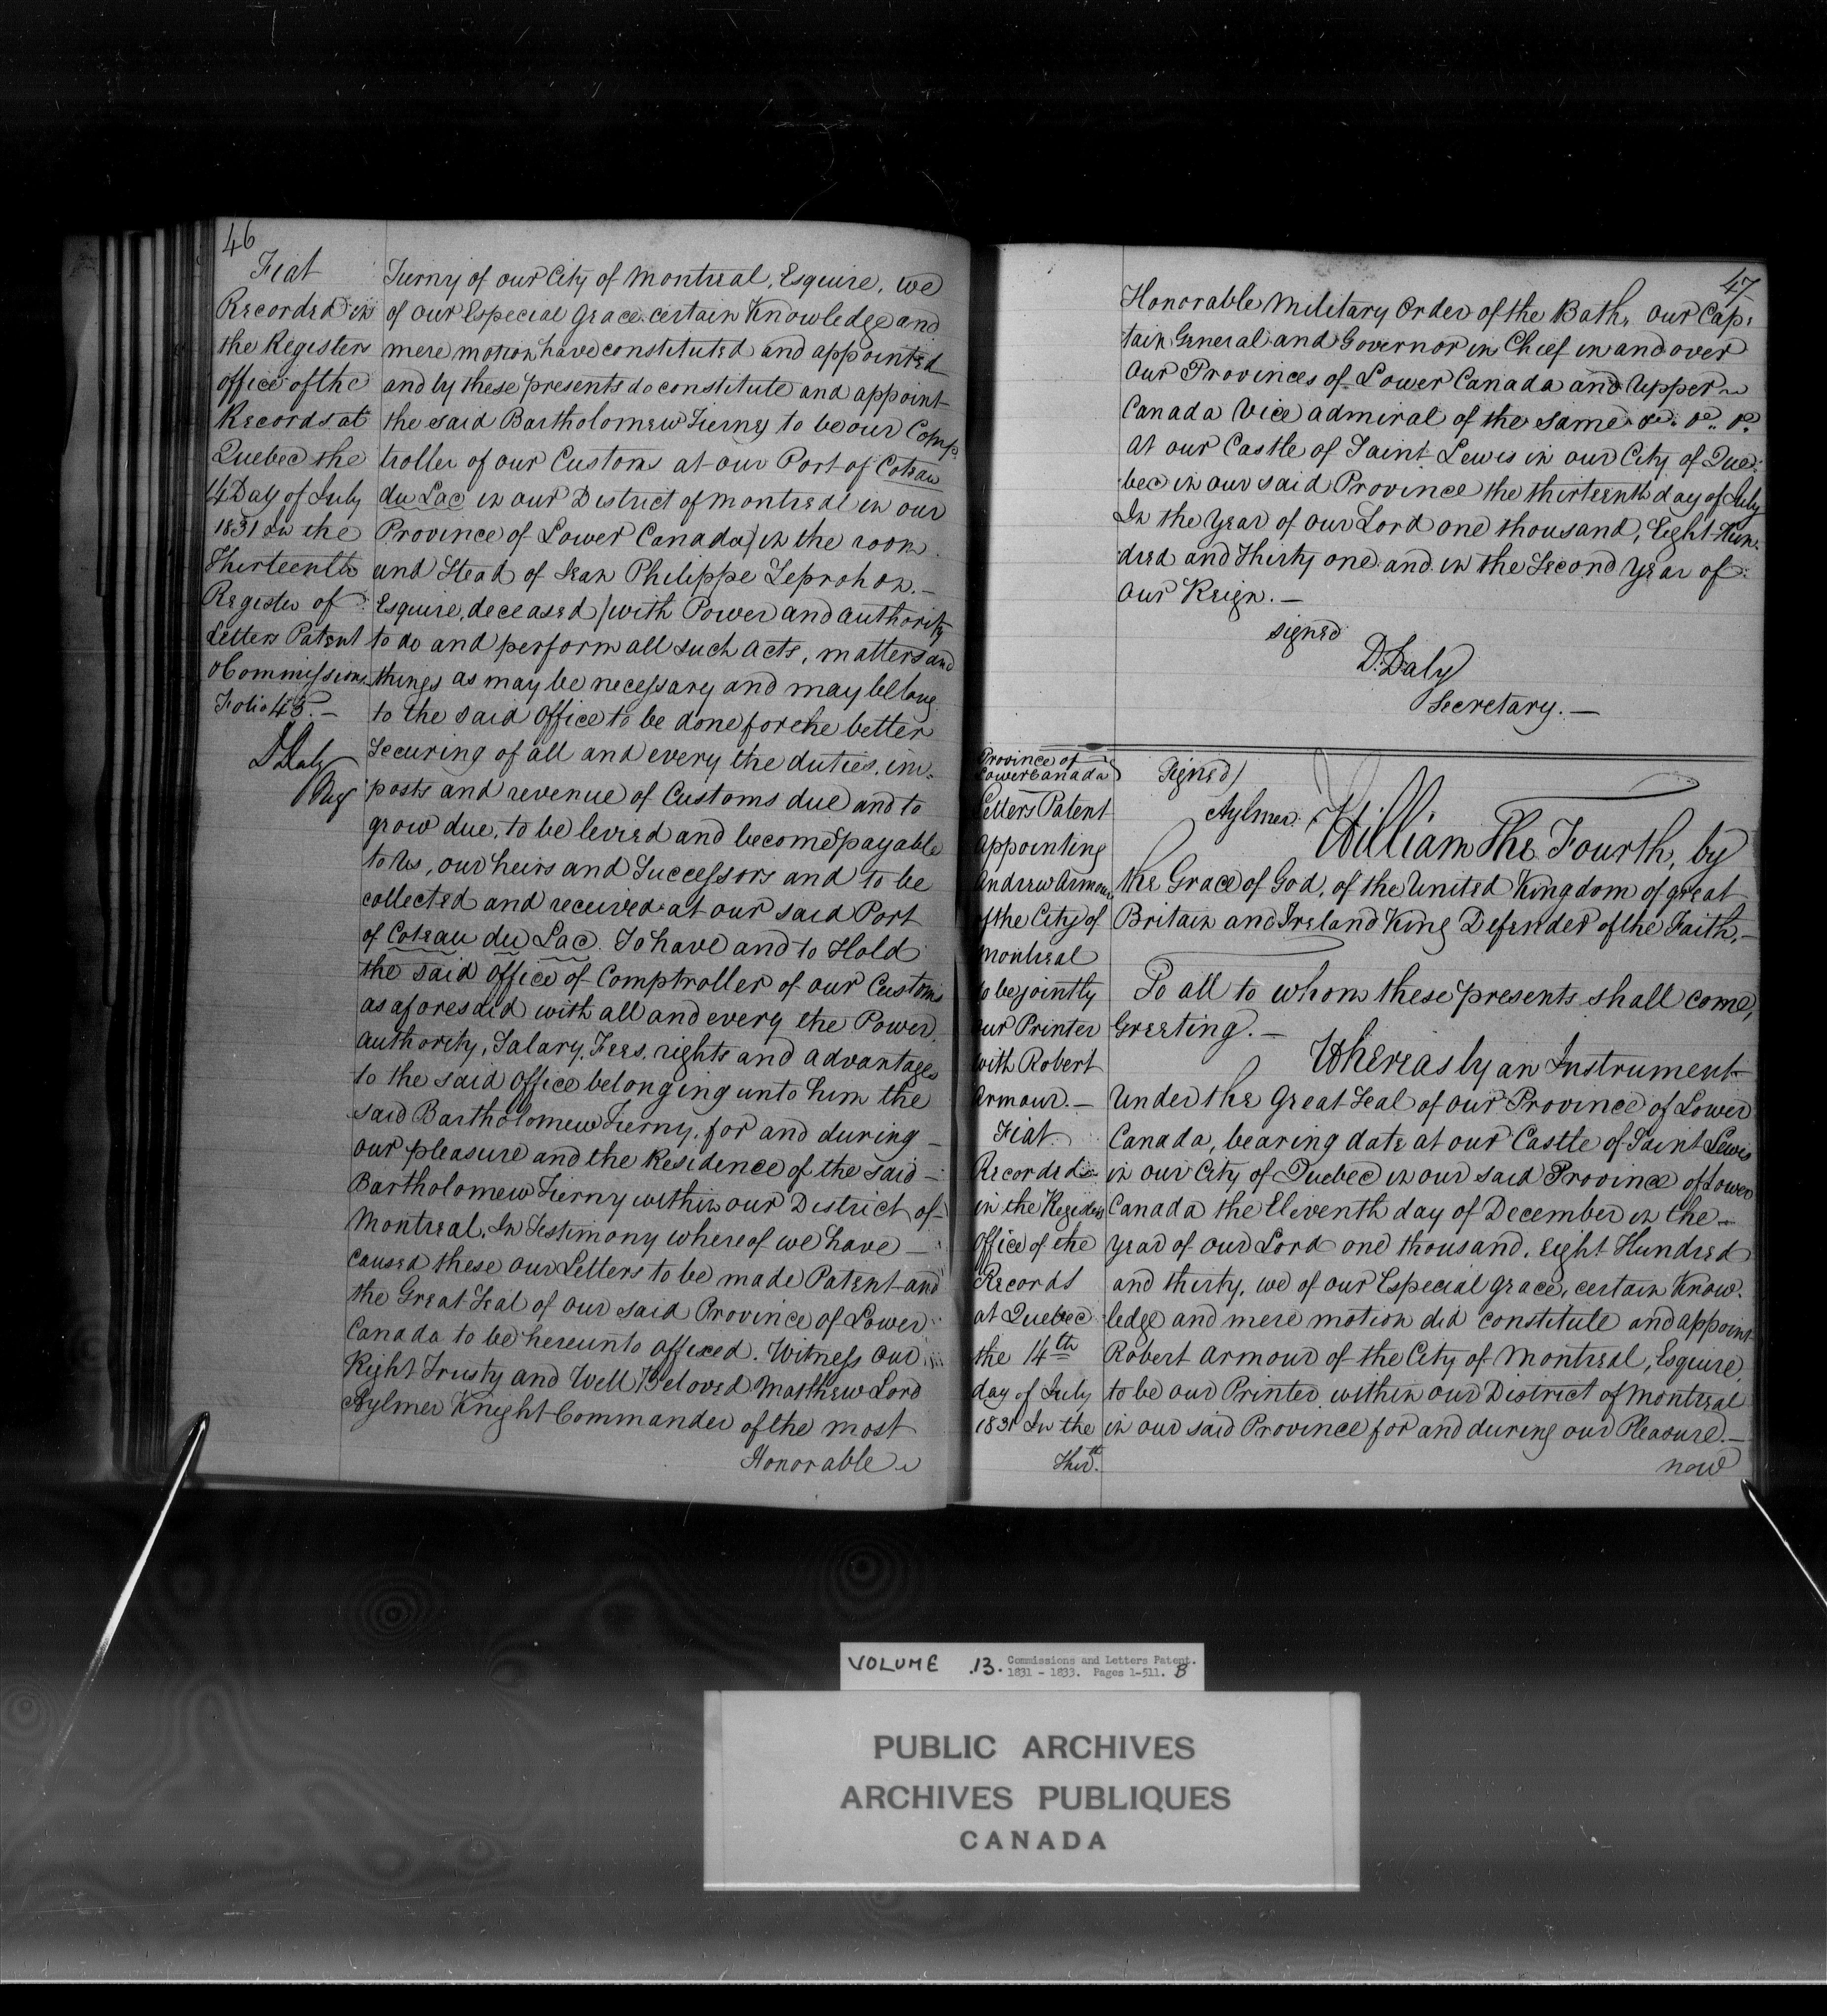 46
Fiat
Recorded in
the Registers
office of the
Records at
Quebec the
14 Day of July
1831 In the
Thirteenth
Register of
Letters Patent
& Commissions
Folio 45.—
D Daly
Reg
Tierny of our City of Montreal, Esquire, we
of our Especial grace certain Knowledge and
mere motion have constituted and appointed
and by these presents do constitute and appoint
the said Bartholomew Tierny to be our Comp
troller of our Customs at our Port of Coteau
du Lac in our District of Montreal in our
Province of Lower Canada) in the room
and Stead of Jean Philippe Leprohon.—
Esquire, deceased) with Power and authority
to do and perform all such acts, matters and
things as may be necessary and may belong
to the said Office to be done for the better
Securing of all and every the duties, im-
posts and revenue of Customs due and to
grow due, to be levied and become payable
to Us, our heirs and Successors and to be
collected and received at our said Port
of Coteau du Lac. To have and to Hold
the said office of Comptroller of our Customs
as aforesaid with all and every the Power
authority, Salary, Fees, rights and advantages
to the said office belonging unto him the
said Bartholomew Tierny, for and during —
our pleasure and the Residence of the said —
Bartholomew Tierny within our District of —
Montreal. In Testimony whereof we have —
caused these our Letters to be made Patent and
the Great Seal of our said Province of Lower
Canada to be hereunto affixed. Witness our
Right Trusty and Well Beloved Matthew Lord
Aylmer Knight Commander of the most
Honorable
47
Honorable Military Order of the Bath, our Cap:
tain General and Governor in Chief in and over
our Provinces of Lower Canada and Upper
Canada Vice admiral of the same &c. &c. &c.
at our Castle of Saint Lewis in our City of Que:
bec in our said Province the thirteenth day of July
In the Year of our Lord one thousand, Eight Hun-
dred and Thirty one and in the Second year of
our Reign.—
signed
D. Daly
Secretary.—
Province of
Lower Canada
Letters Patent
Appointing
Andrew Armour
of the City of
Montreal
to be jointly
our Printer
with Robert
Armour.—
Fiat.
Recorded
in the Registers
Office of the
Records
at Quebec
the 14th
day of July
1831 In the
Thirth.
Signed)
Aylmer.
William The Fourth, by
the Grace of God, of the United Kingdom of great
Britain and Ireland King Defender of the Faith,—
To all to whom these presents shall come,
Greeting.—
Whereas by an Instrument
Under the Great Seal of our Province of Lower
Canada, bearing date at our Castle of Saint Lewis
in our City of Quebec in our said Province of Lower
Canada the Eleventh day of December in the —
year of our Lord one thousand, eight Hundred
and thirty, we of our Especial grace, certain Know-
ledge and mere motion did constitute and appoint
Robert Armour of the City of Montreal, Esquire,
to be our Printer within our District of Montreal
in our said Province for and during our Pleasure.—
now
VOLUME .13. Commissions and Letters Patent.
1831 - 1833. Pages 1-511. B
PUBLIC ARCHIVES
ARCHIVES PUBLIQUES
CANADA